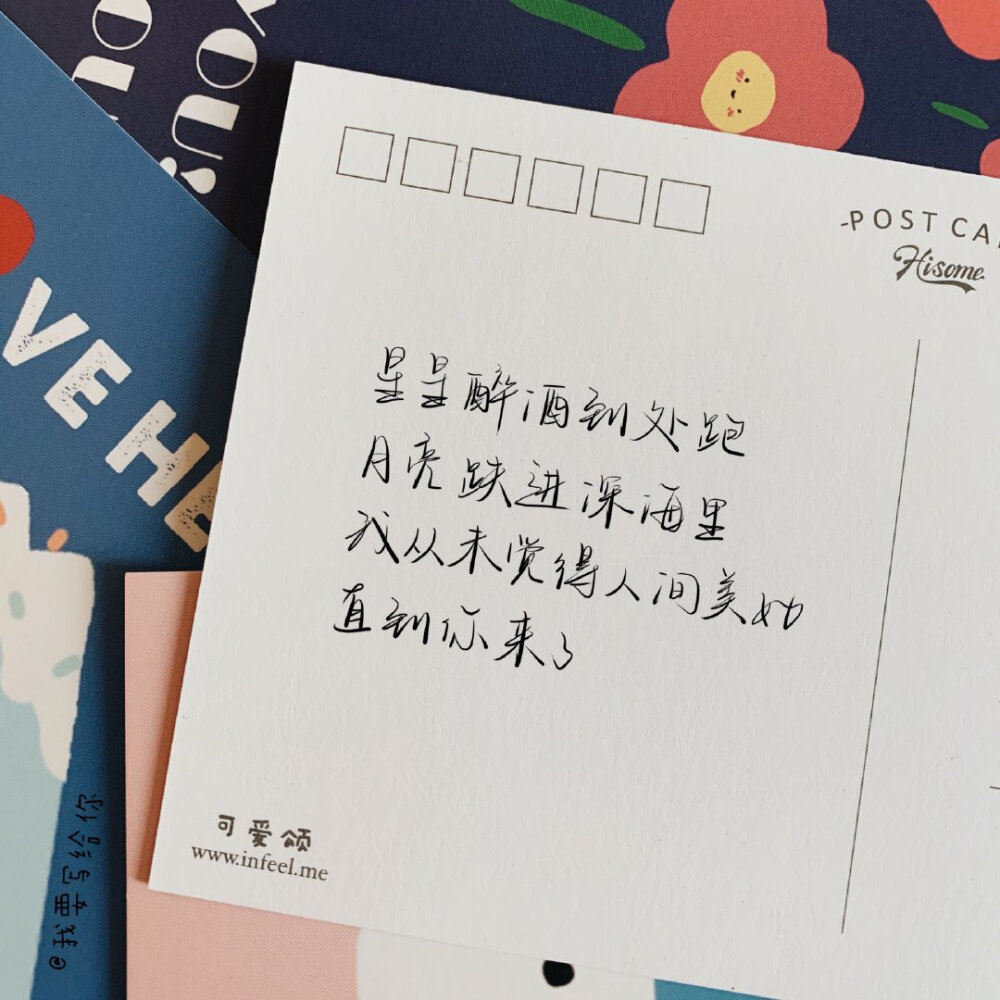 YOU!
VE HE
POST CA
Hisome
星星醉酒到处跑
月亮跌进深海里
我从未觉得人间美好
直到你来了
可爱颂
www.infeel.me
@我要写给你